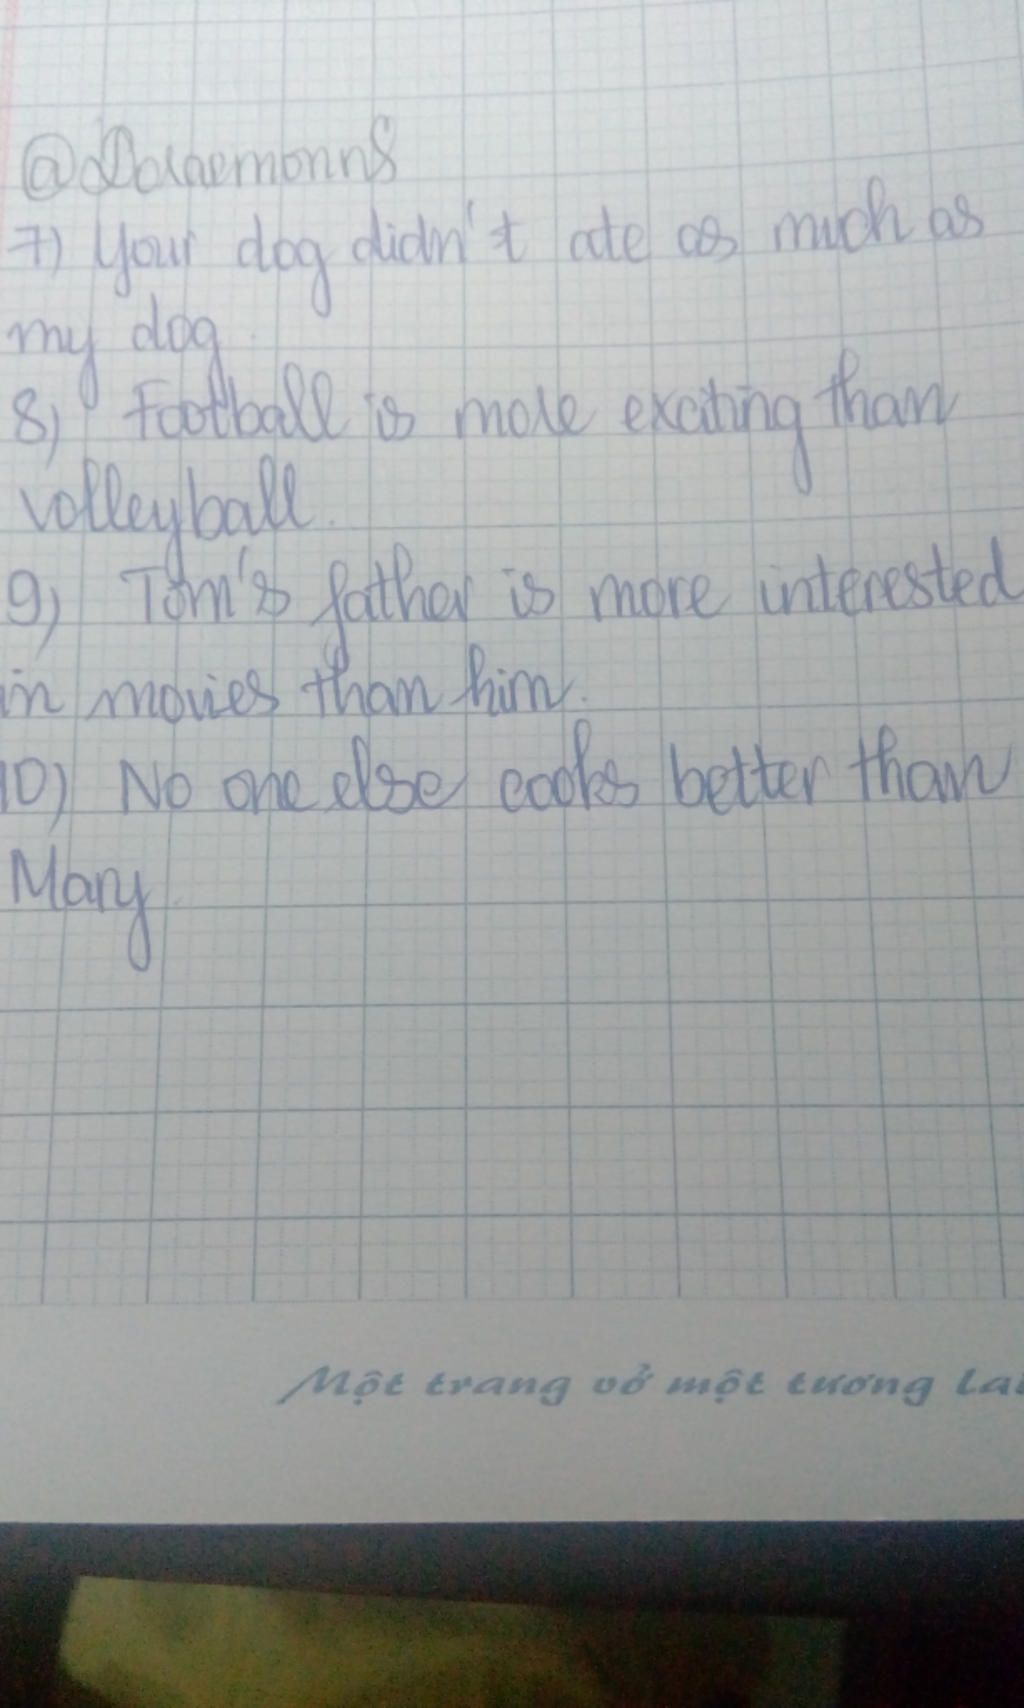 @dDoraemonn8
7) Your dog didn't ate as much as
my dog.
8) Football is more exciting than
volleyball.
9) Tom's father is more interested
in movies than him.
10) No one else cooks better than
Mary.
Một trang vở một tương lai